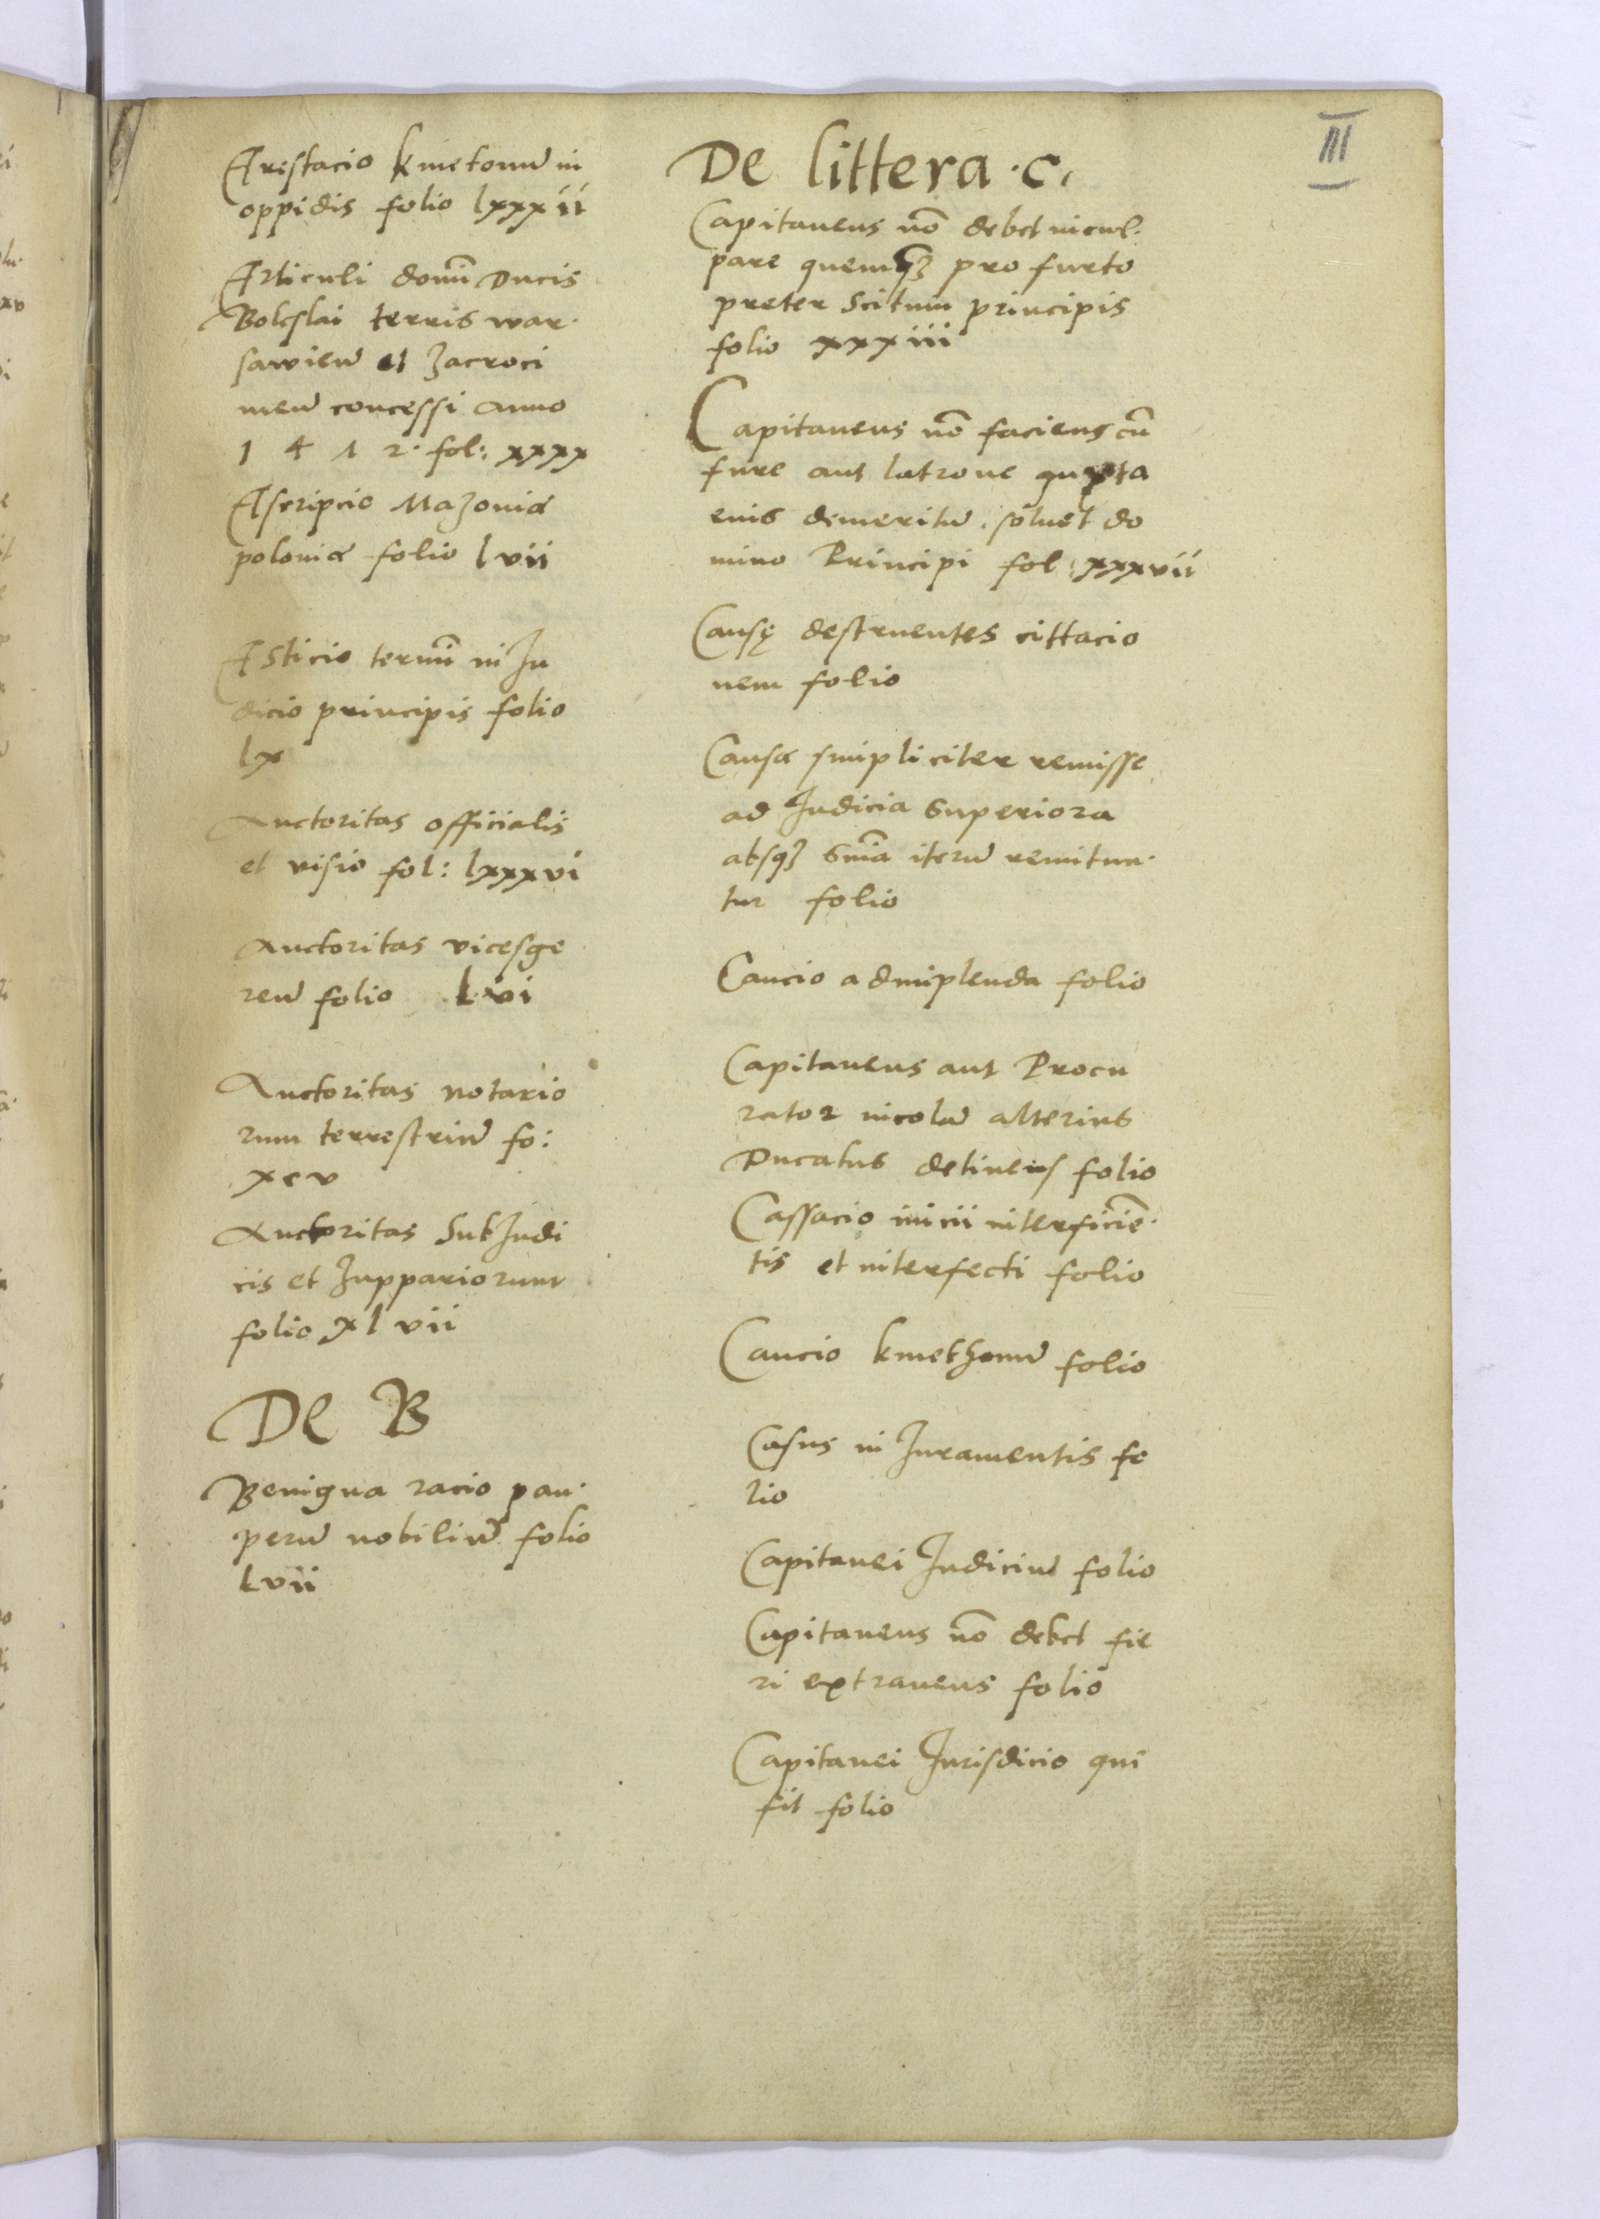 III
Arestacio kmetonum in
oppidis folio lxxxii
Articuli domini Ducis
Boleslai terris war.
sawien et Zacroci
men concessi anno
1 4 1 2. fol: xxxx
Ascripcio Mazoviæ
poloniæ folio lvii
Asticio termini in Ju
dicio principis folio
lx
Auctoritas officialis
et visio fol: lxxxvi
Auctoritas vicesge
ren folio lvi
Auctoritas notario
rum terrestrium fo:
xcv
Auctoritas SubJudi
cis et Juppariorum
folio xlvii
De B
Benigna racio pau.
perum nobilium folio
Lvii
De littera .c.
Capitaneus nō debet incul.
pare quemqz pro furto
preter Scitum principis
folio xxxiii
Capitaneus nō faciens cū
fure aut latrone quxta
euis demeritum soluet do
mino Principi fol: xxxvii
Causę destruentes cittacio
nem folio
Causæ simpliciter remisse
ad Judicia Superiora
absqz Sniā iterum remitun.
tur folio
Caucio adimplenda folio
Capitaneus aut Procu
rator incolam alterius
Ducatus detinens folio
Cassacio inicii interficiē.
tis et interfecti folio
Caucio kmethonum folio
Casus in Juramentis fo
lio
Capitanei Judicium folio
Capitaneus nō debet fie
ri extraneus folio
Capitanei Jurisdicio qui
sit folio